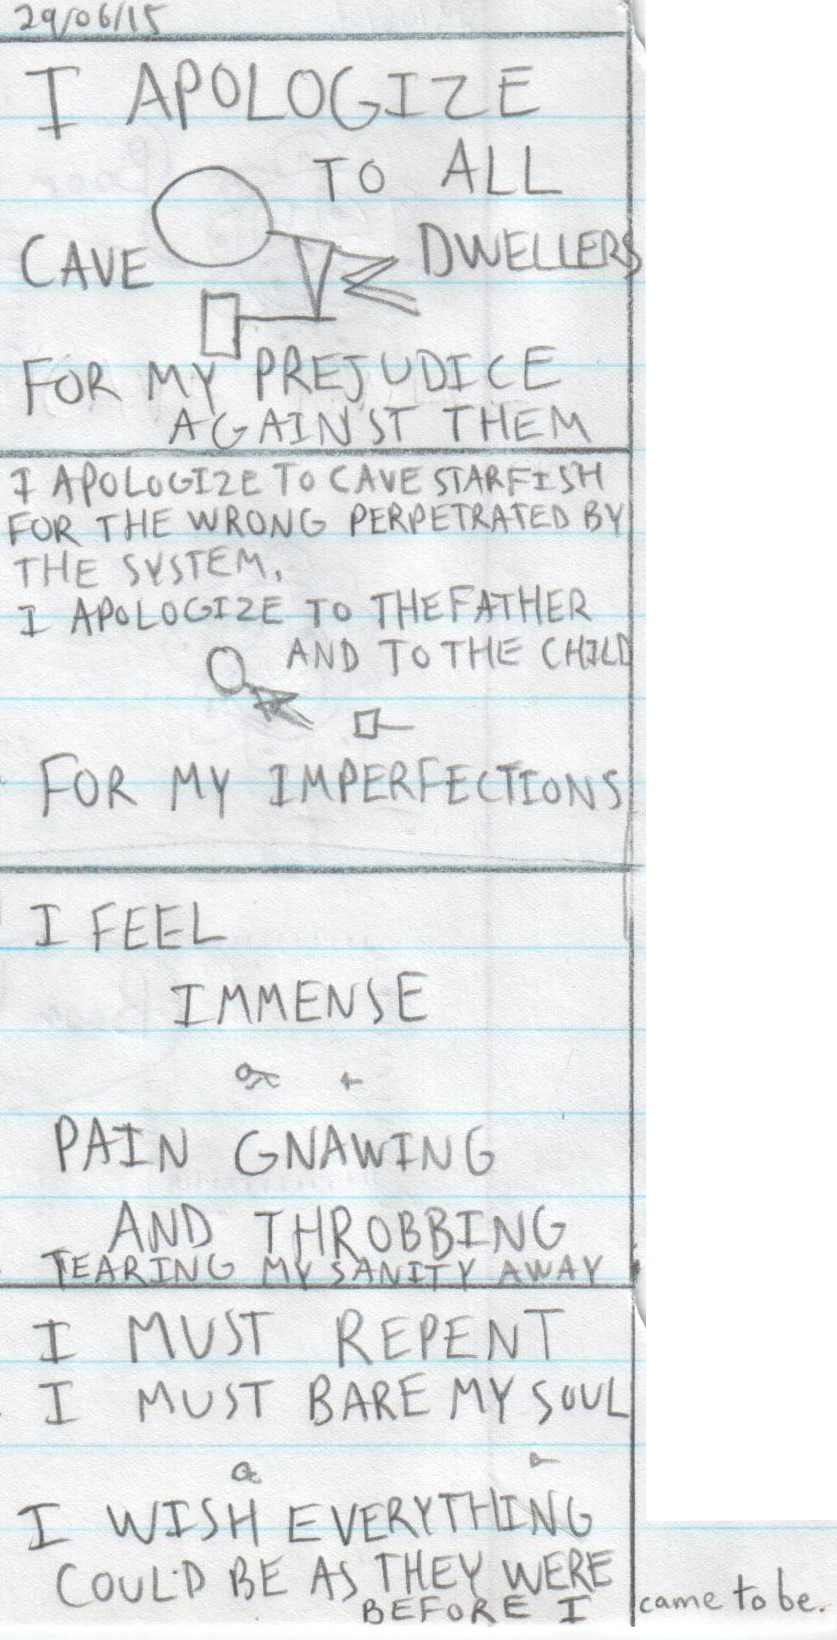 29/06/15
I APOLOGIZE
TO ALL
CAVE DWELLERS
FOR MY PREJUDICE
AGAINST THEM
I APOLOGIZE TO CAVE STARFISH
FOR THE WRONG PERPETRATED BY
THE SYSTEM.
I APOLOGIZE TO THE FATHER
AND TO THE CHILD
FOR MY IMPERFECTIONS
I FEEL
IMMENSE
PAIN GNAWING
AND THROBBING
TEARING MY SANITY AWAY
I MUST REPENT
I MUST BARE MY SOUL
I WISH EVERYTHING
COULD BE AS THEY WERE
BEFORE I came to be.